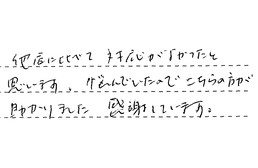 他店に比べて 対応がよかったと
思います。 悩んでしたので こちらの方が
助かりました 感謝しています。